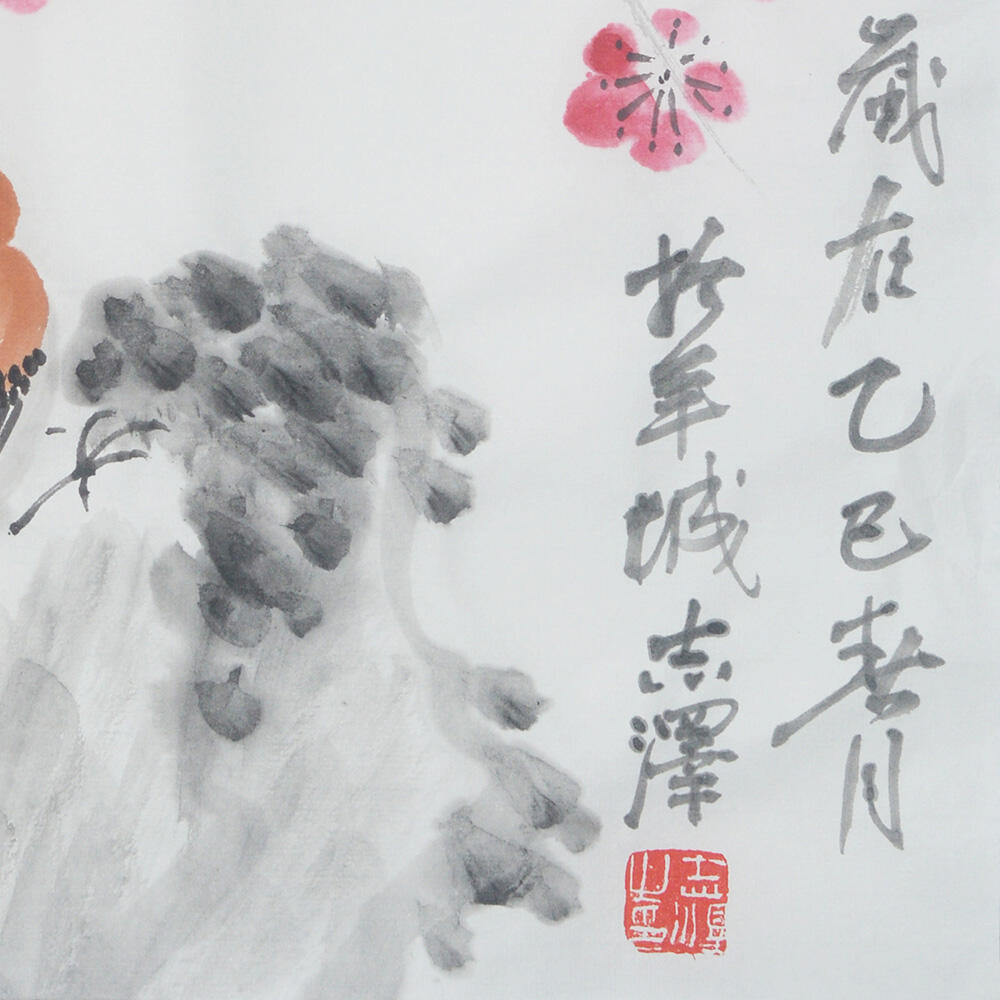 歲在乙巳春月
於羊城志澤
志澤